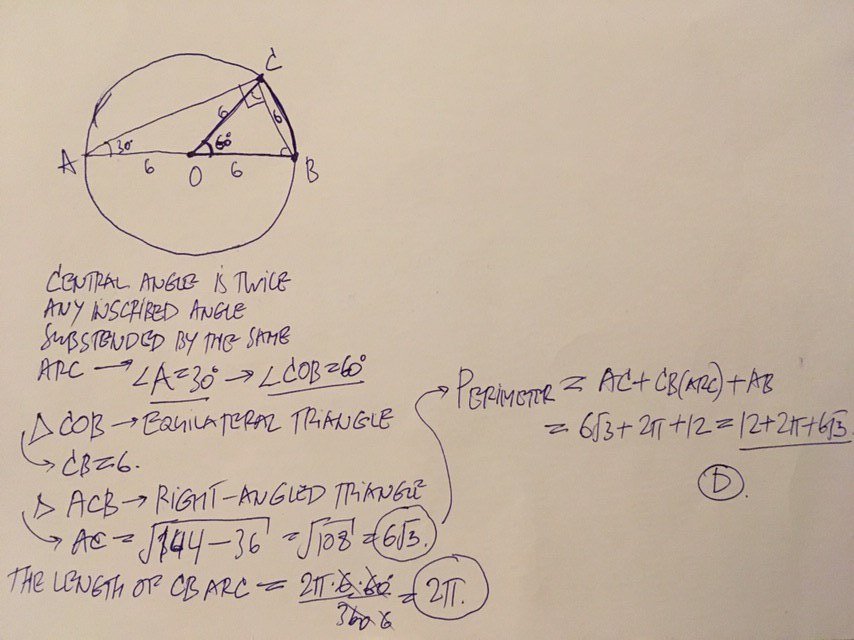 C
6
6
30°
60°
A
6
O
6
B
CENTRAL ANGLE IS TWICE
ANY INSCRIBED ANGLE
SUBSTENDED BY THE SAME
ARC → ∠A=30° → ∠COB=60°
△ COB → EQUILATERAL TRIANGLE
→ CB=6.
△ ACB → RIGHT-ANGLED TRIANGLE
→ AC = √144-36 = √108 = 6√3.
THE LENGTH OF CB ARC = 2π·6·60° / 360 6 = 2π.
→ PERIMETER = AC + CB(ARC) + AB
= 6√3 + 2π + 12 = 12+2π+6√3.
D.